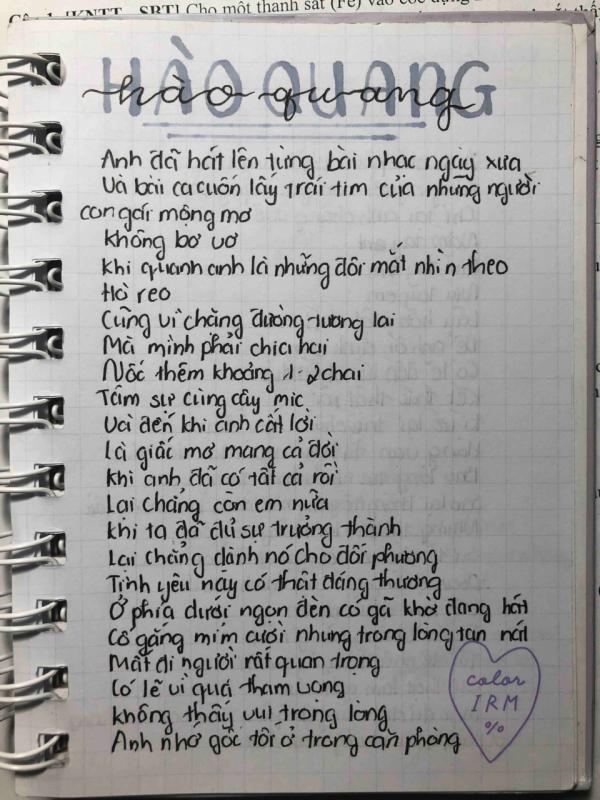 [KNTT - SBT] Cho một thanh sắt (Fe) vào cốc đựng
HÀO QUANG
hào quang
Anh đã hát lên từng bài nhạc ngày xưa
Và bài ca cuốn lấy trái tim của những người
con gái mộng mơ
Không bơ vơ
Khi quanh anh là những đôi mắt nhìn theo
Hò reo
Cũng vì chặng đường tương lai
Mà mình phải chia hai
Nốc thêm khoảng 1-2 chai
Tâm sự cùng cây mic
Và đến khi anh cất lời
Là giấc mơ mang cả đời
Khi anh đã có tất cả rồi
Lại chẳng còn em nữa
Khi ta đã đủ sự trưởng thành
Lại chẳng dành nó cho đối phương
Tình yêu này có thật đáng thương
Ở phía dưới ngọn đèn có gã khờ đang hát
Cố gắng mím cười nhưng trong lòng tan nát
Mất đi người rất quan trọng
Có lẽ vì quá tham vọng
Không thấy vui trong lòng
Anh nhớ góc tối ở trong căn phòng
color
IRM
%